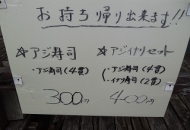 お持ち帰り出来ます!!
☆アジ寿司
・アジ寿司(4貫)
300円
☆アジイナリセット
・アジ寿司(4貫)
・イナリ寿司(2貫)
400円